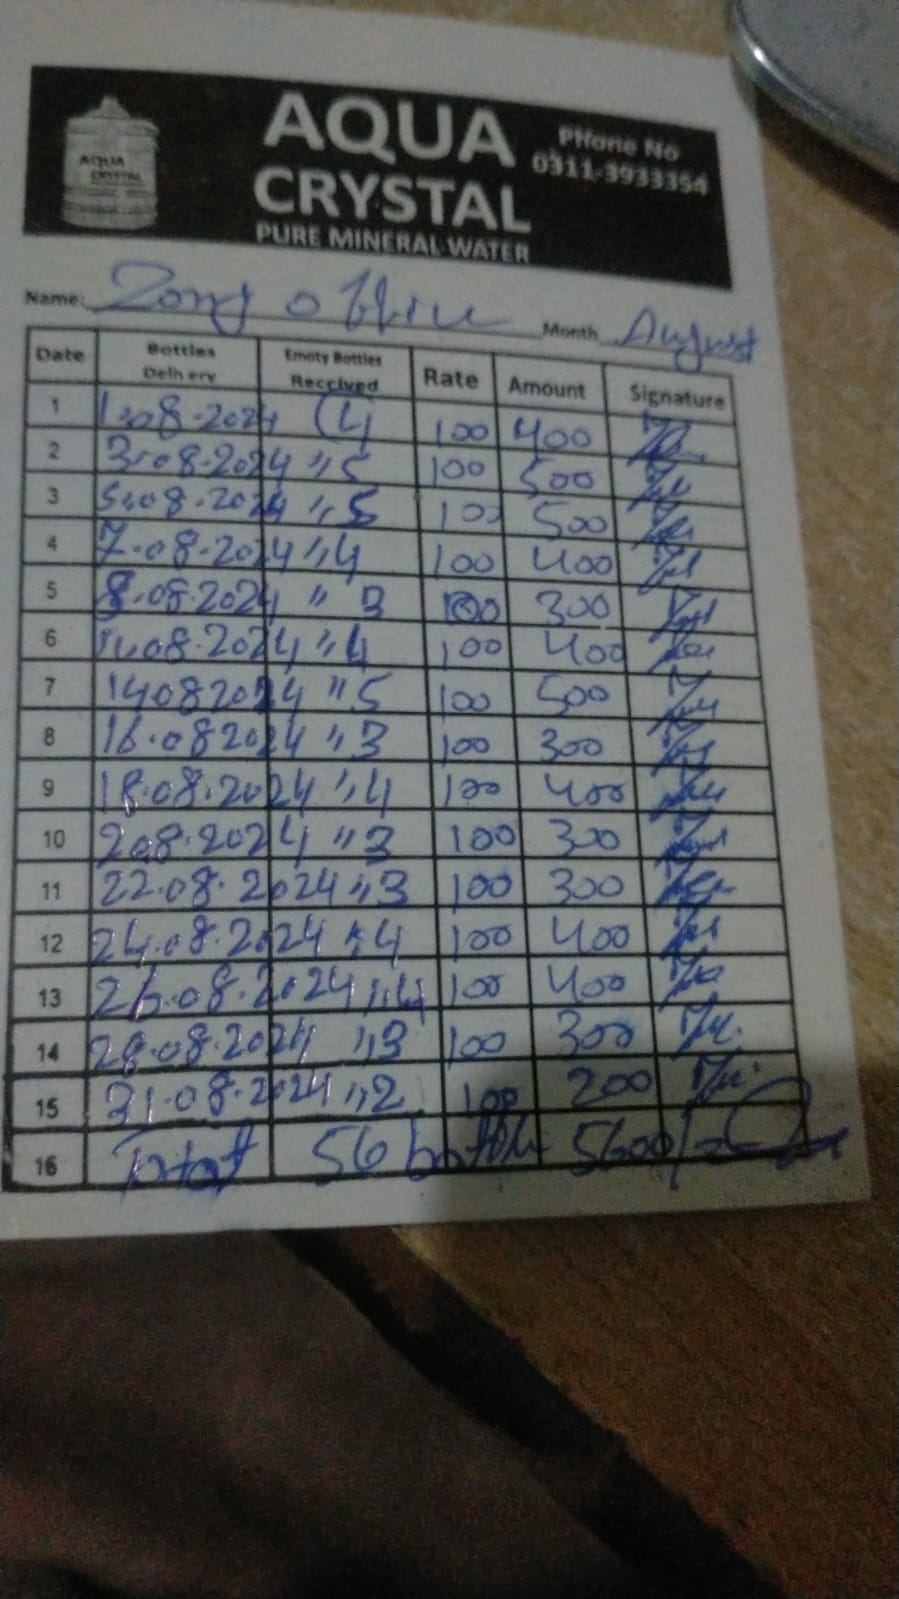 AQUA
CRYSTAL
PURE MINERAL WATER
Phone No
0311-3933354
AQUA
CRYSTAL
Name: Zong office Month August
Date Bottles Delhery Emoty Bottles Received Rate Amount Signature
1 1.08.2024 (4) 100 400
2 3.08.2024 " 5 100 500
3 5.08.2024 " 5 100 500
4 7.08.2024 " 4 100 400
5 8.08.2024 " 3 100 300
6 08.2024 " 4 100 400
7 14082024 " 5 100 500
8 16.082024 " 3 100 300
9 18.08.2024 " 4 100 400
10 208.2024 " 3 100 300
11 22.08.2024 " 3 100 300
12 24.08.2024 " 4 100 400
13 26.08.2024 " 4 100 400
14 28.08.2024 " 3 100 300
15 31.08.2024 " 2 100 200
16 Total 56 bottle 5600/=